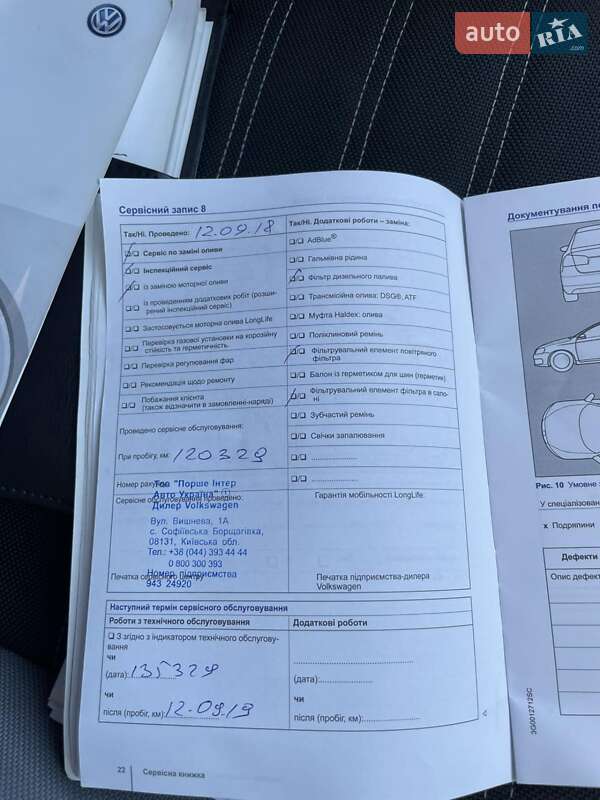 auto RIA
.com
Сервісний запис 8
Так/Ні. Проведено: 12.09.18
Сервіс по заміні оливи
Інспекційний сервіс
із заміною моторної оливи
із проведенням додаткових робіт (розши-
рений інспекційний сервіс)
Застосовується моторна олива LongLife
Перевірка газової установки на корозійну
стійкість та герметичність
Перевірка регулювання фар
Рекомендація щодо ремонту
Побажання клієнта
(також відзначити в замовленні-наряді)
Проведено сервісне обслуговування:
При пробігу, км: 120329
Номер рахунку
Тов "Порше Інтер
Авто Україна" (1)
Сервісне обслуговування проведено:
Дилер Volkswagen
Вул. Вишнева, 1А
с. Софіївська Борщагівка,
08131, Київська обл.
Тел.: +38 (044) 393 44 44
0 800 300 393
Номер підприємства
Печатка сервісного центру
943 24920
Так/Ні. Додаткові роботи – заміна:
AdBlue®
Гальмівна рідина
Фільтр дизельного палива
Трансмісійна олива: DSG®, ATF
Муфта Haldex: олива
Поліклиновий ремінь
Фільтрувальний елемент повітряного
фільтра
Балон із герметиком для шин (герметик)
Фільтрувальний елемент фільтра в сало-
ні
Зубчастий ремінь
Свічки запалювання
Гарантія мобільності LongLife:
Печатка підприємства-дилера
Volkswagen
Наступний термін сервісного обслуговування
Роботи з технічного обслуговування
З згідно з індикатором технічного обслугову-
вання
чи
(дата): 135329
чи
після (пробіг, км): 12.09.19
Додаткові роботи
(дата):
чи
після (пробіг, км):
22 Сервісна книжка
Документування пе
Рис. 10 Умовне з
У спеціалізован
x Подряпини
Дефекти
Опис дефект
3G0012712SC